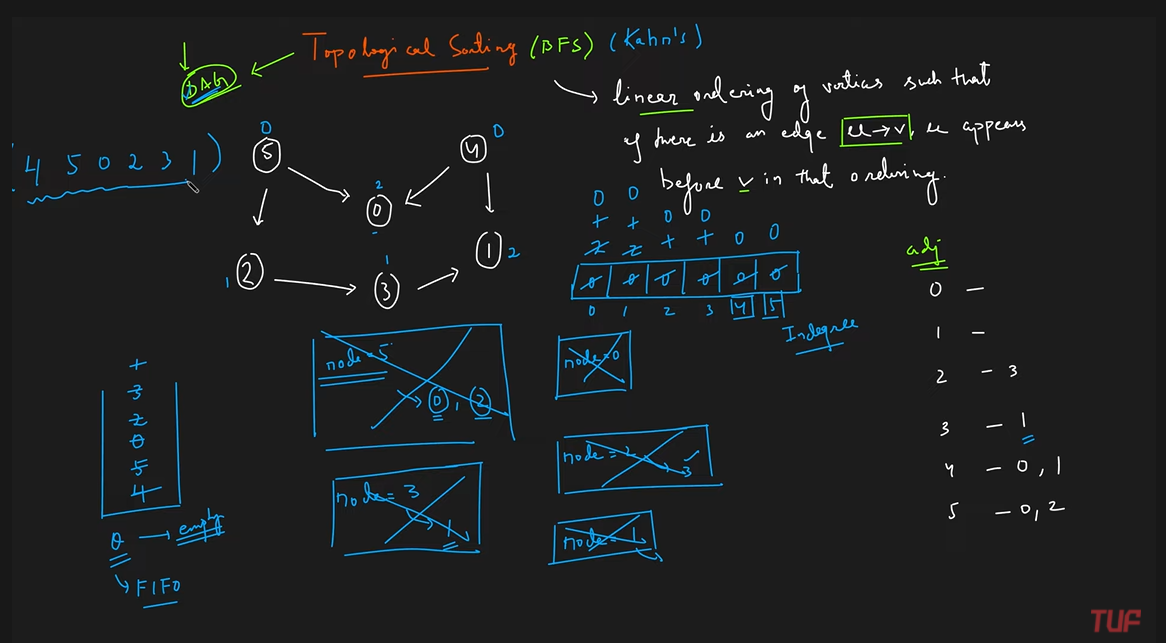 Topological Sorting (BFS) (Kahn's)
DAG
linear ordering of vertices such that
if there is an edge u→v, u appears
before v in that ordering.
4 5 0 2 3 1)
0
5
0
4
2
0
1
2
1
3
1 2
0 0
+ + 0 0
2 2 + + 0 0
0 0 0 0 0 0
0 1 2 3 4 5
Indegree
adj
0 –
1 –
2 – 3
3 – 1
4 – 0, 1
5 – 0, 2
node = 5
→ 0, 2
node = 0
node = 2
3
node = 3
1
node = 1
1
3
2
0
5
4
Q → empty
FIFO
TUF